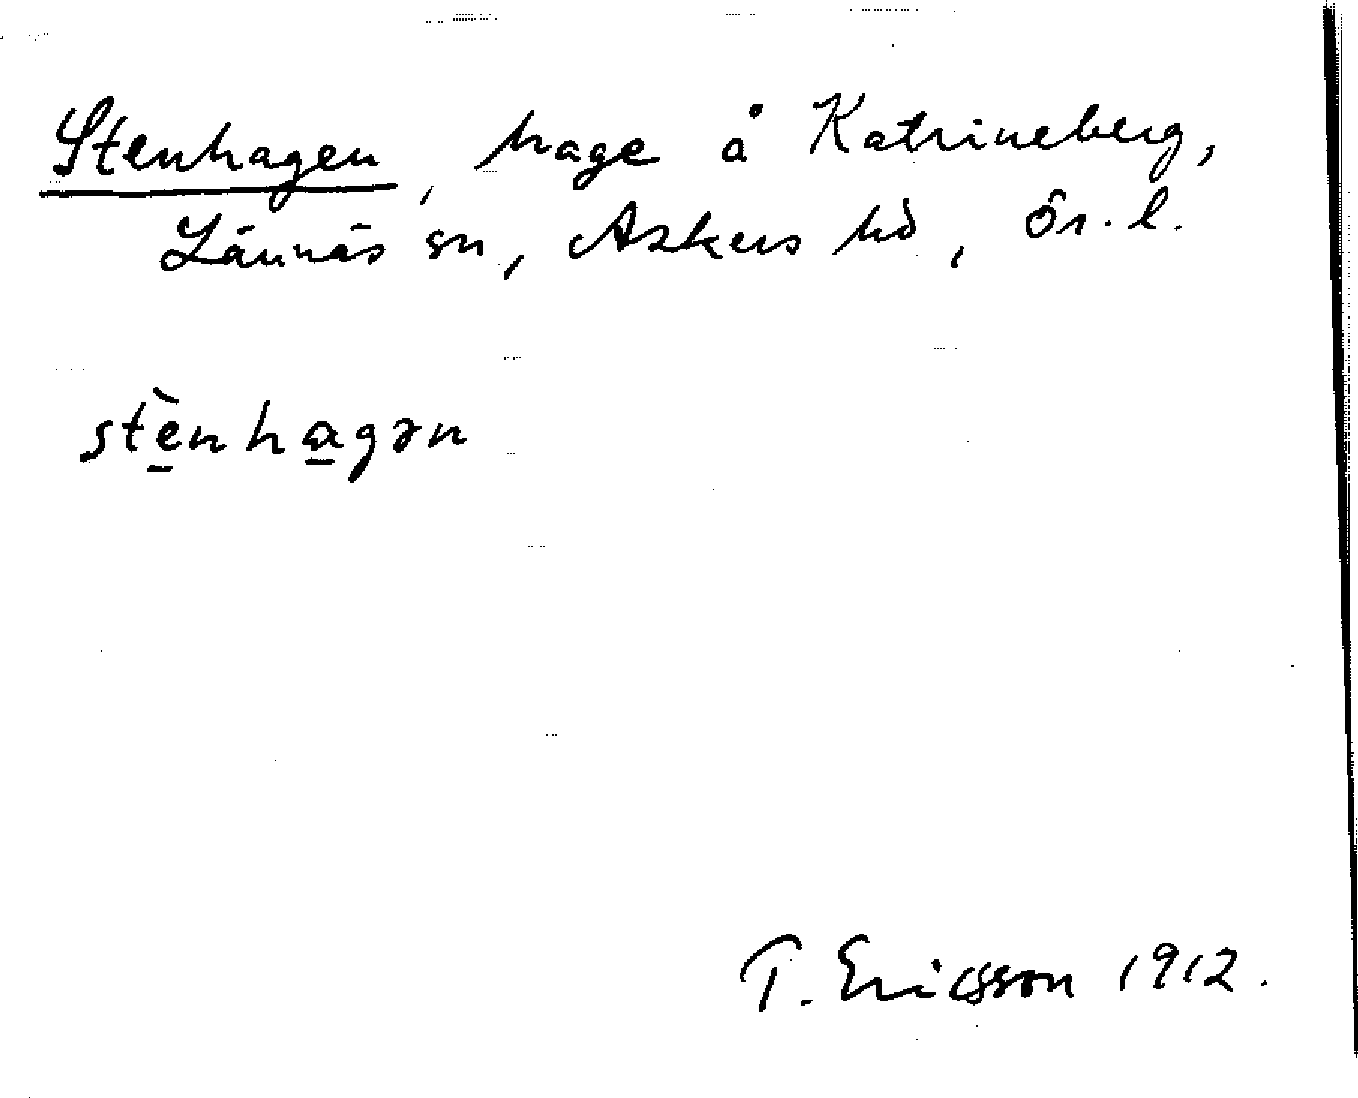 Stenhagen, hage å Katrineberg,
Lännäs sn, Askers hd, Ör. l.
stè̠nha̠gən
T. Ericsson 1912.